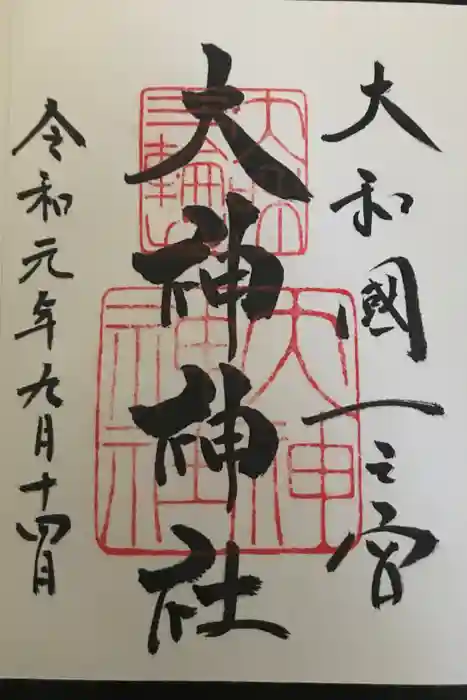 大和國一之宮
大神神社
令和元年九月十四日
三輪山
大神神社